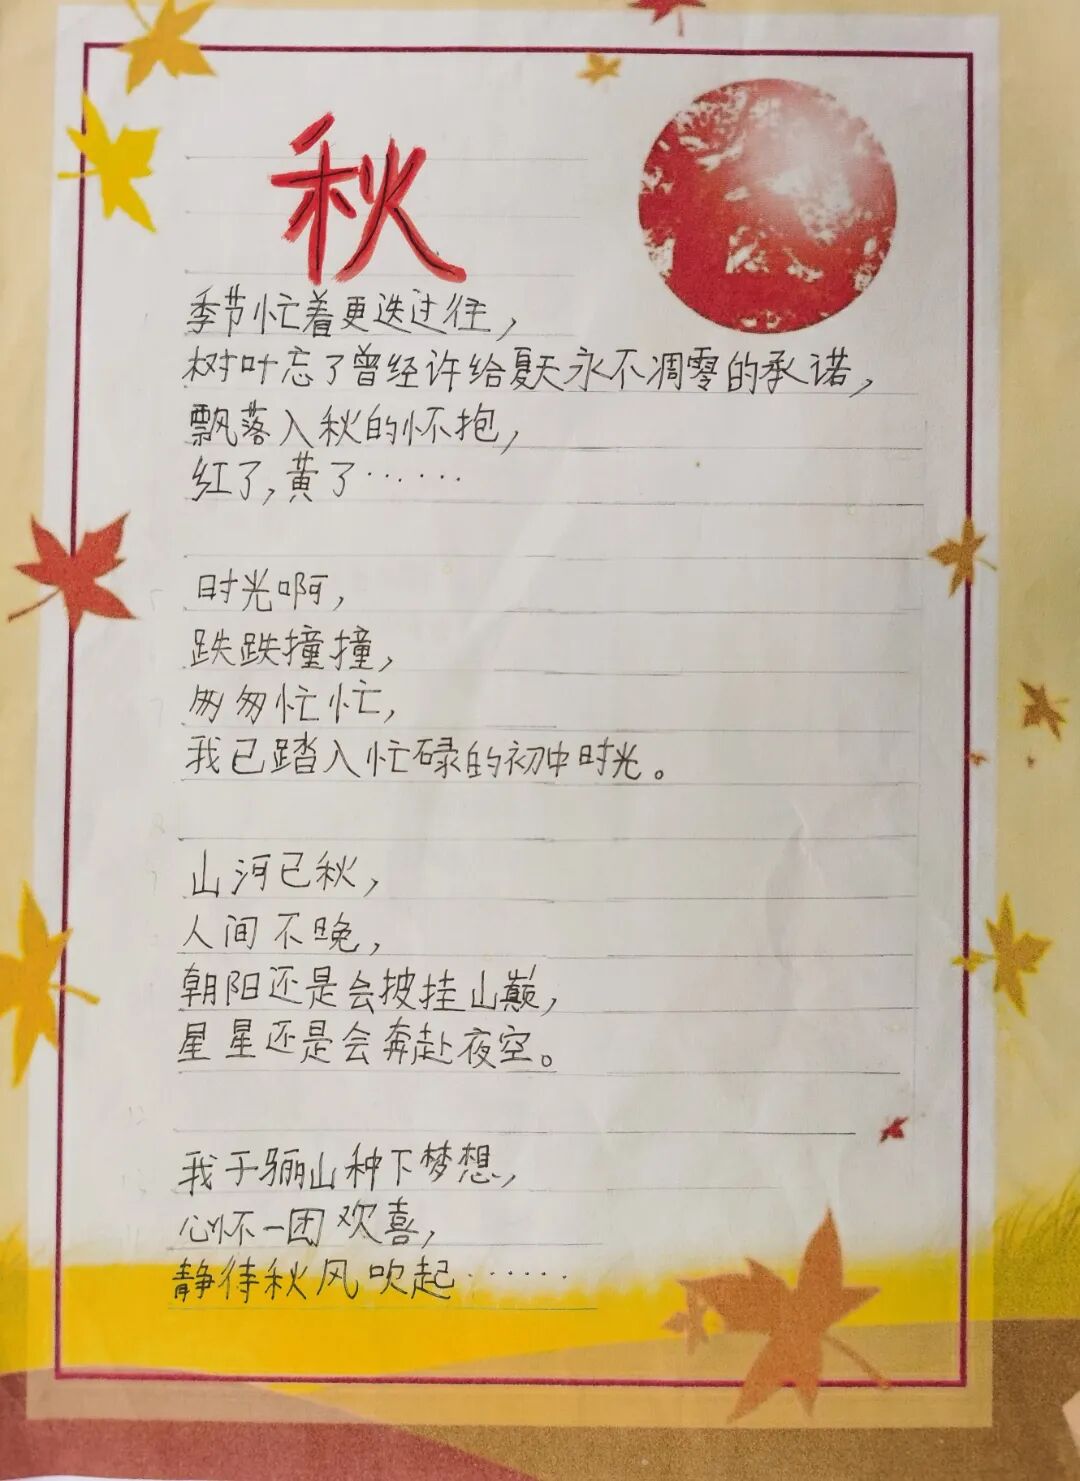 秋
季节忙着更迭过往，
树叶忘了曾经许给夏天永不凋零的承诺，
飘落入秋的怀抱，
红了，黄了……
时光啊，
跌跌撞撞，
匆匆忙忙，
我已踏入忙碌的初中时光。
山河已秋，
人间不晚，
朝阳还是会披挂山巅，
星星还是会奔赴夜空。
我于骊山种下梦想，
心怀一团欢喜，
静待秋风吹起……